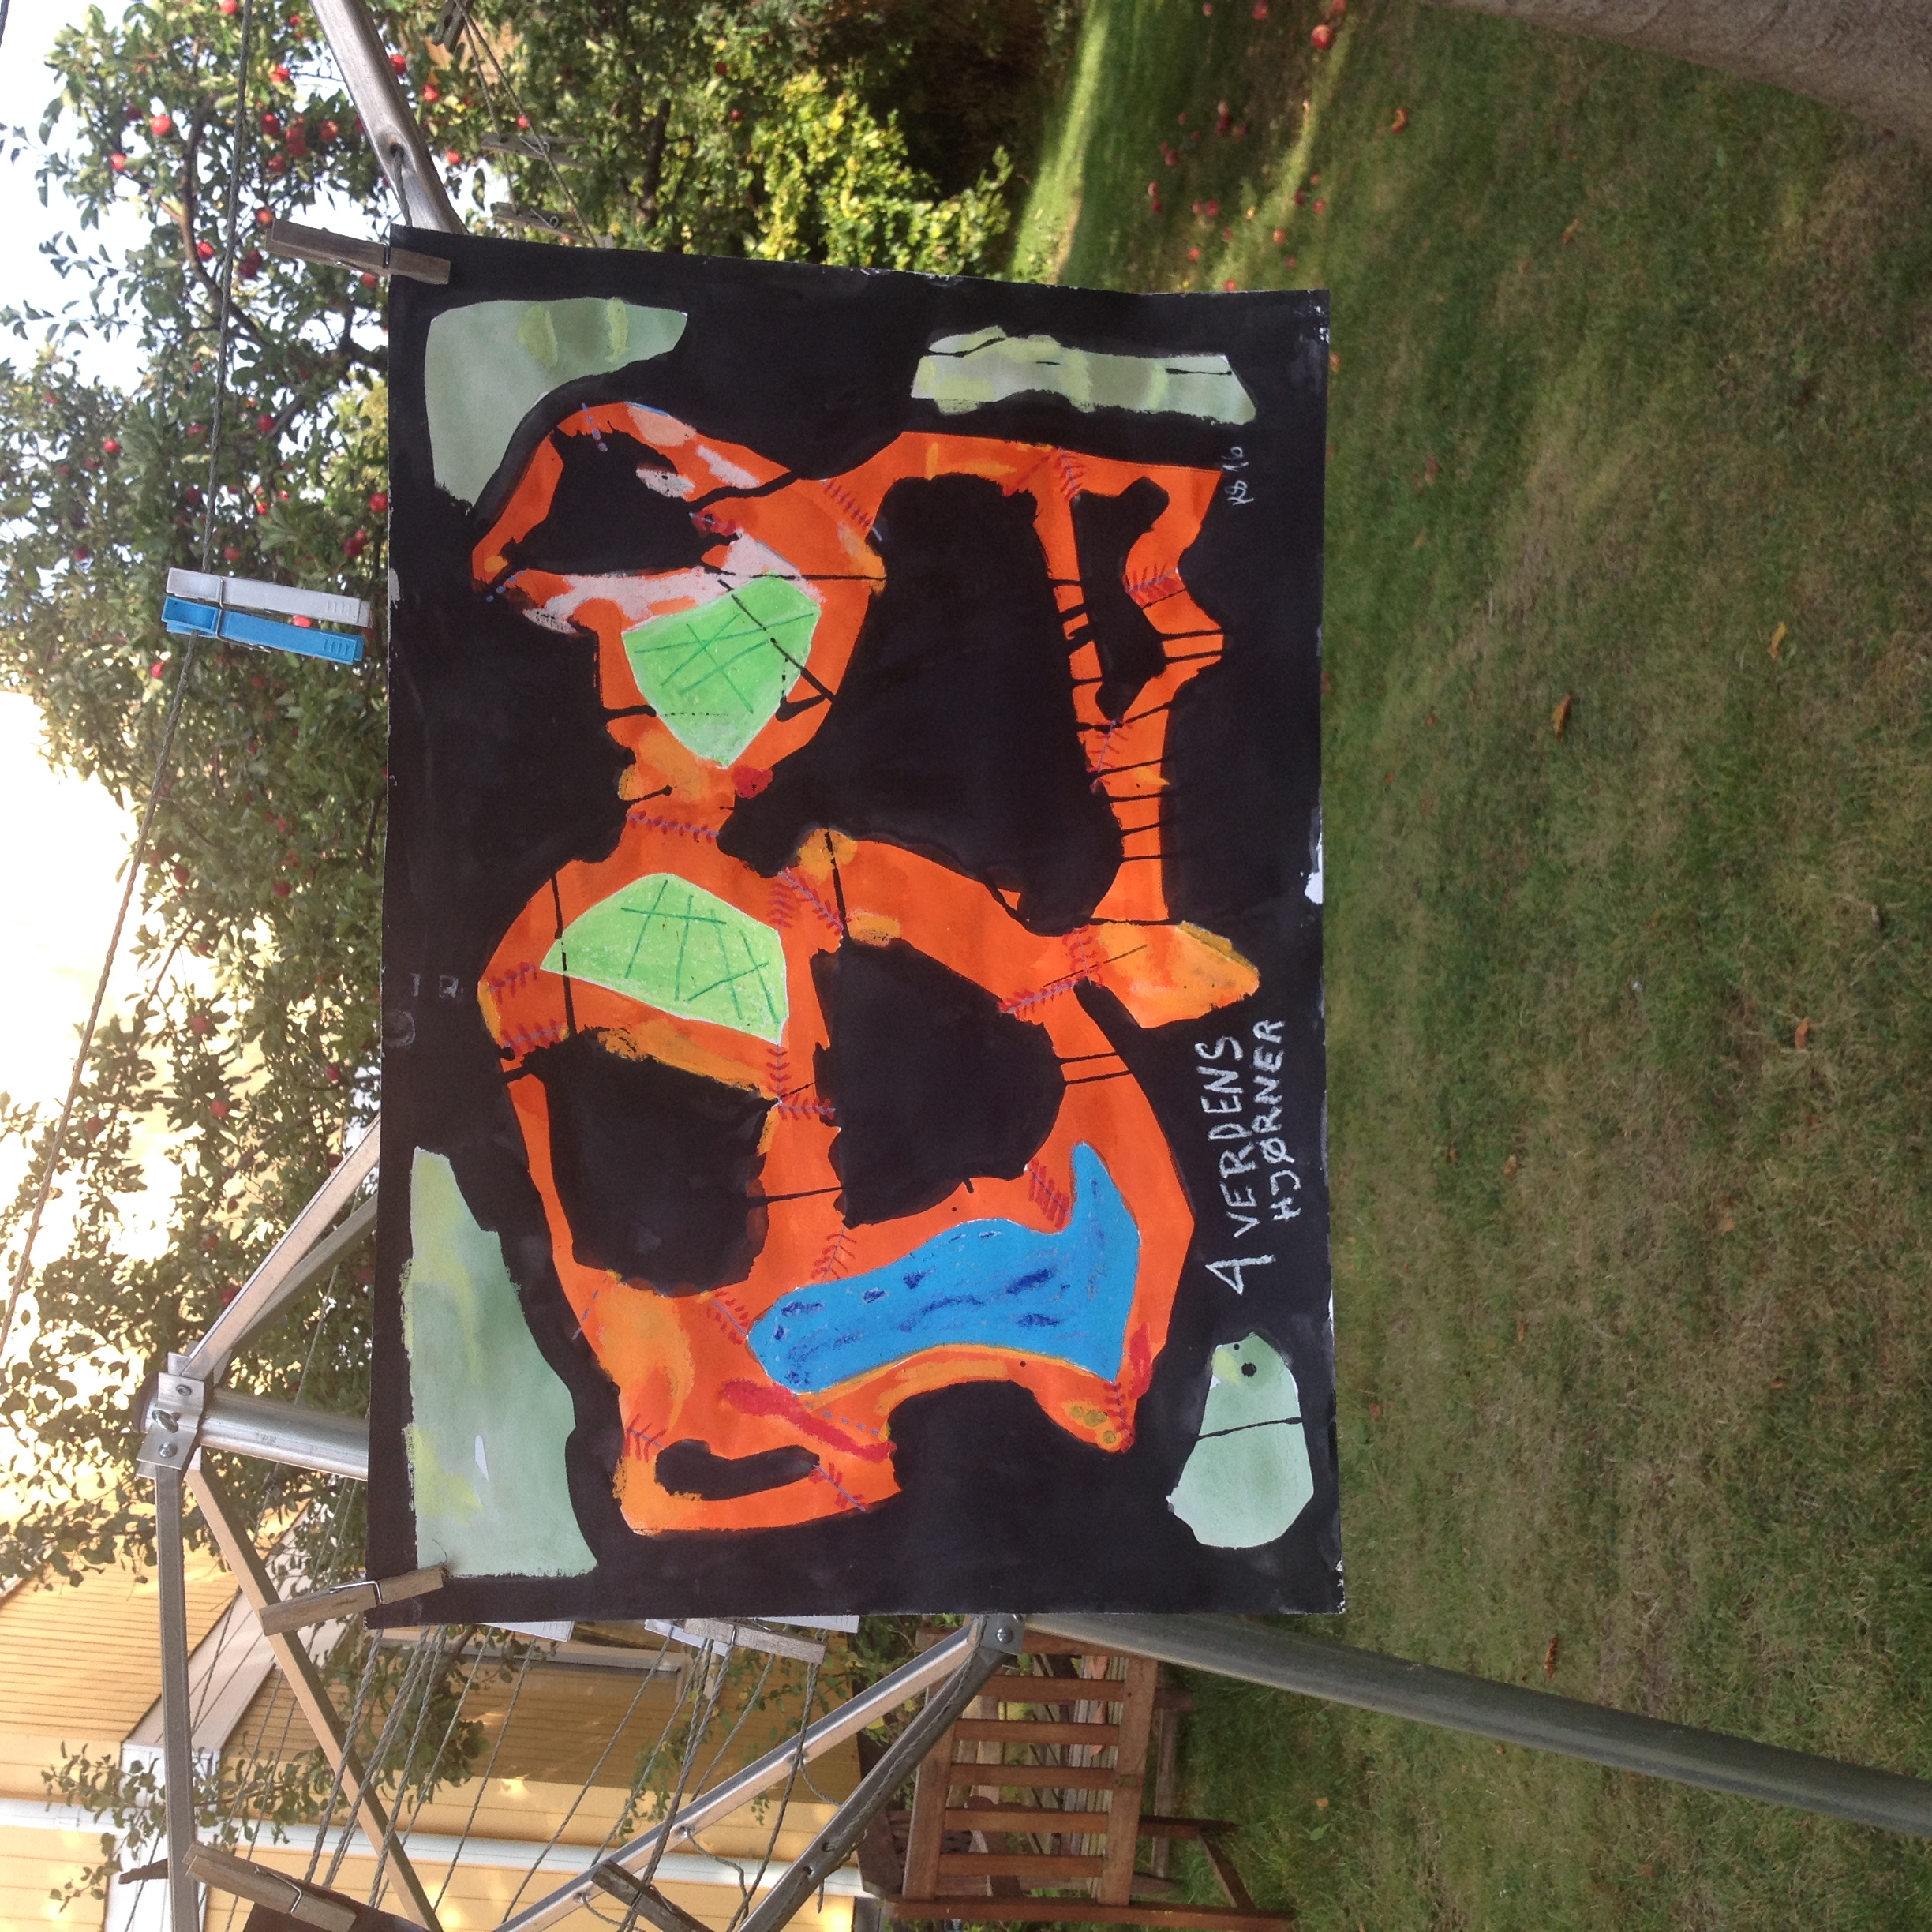 4 VERDENS
HJØRNER
KS 16